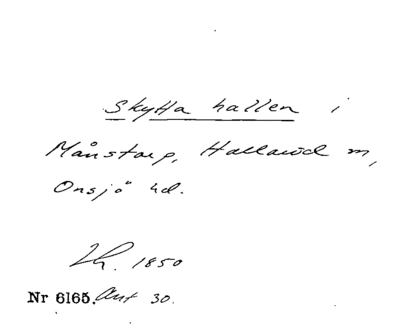 Skytta hallen i
Månstorp, Hallaröd m,
Onsjö hd.
1850
Nr 6165. Ant 30.